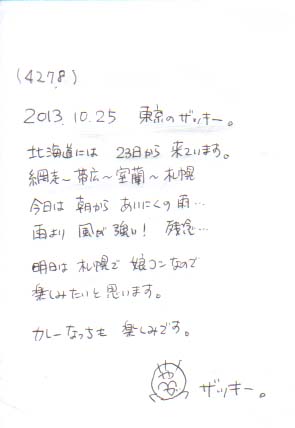 (4278)
2013.10.25 東京のザッキー。
北海道には 23日から 来ています。
網走～帯広～室蘭～札幌
今日は 朝から あいにくの雨…
雨より 風が強い! 残念…
明日は 札幌で 娘コンなので
楽しみたいと思います。
カレーなっちも 楽しみです。
ザッキー。